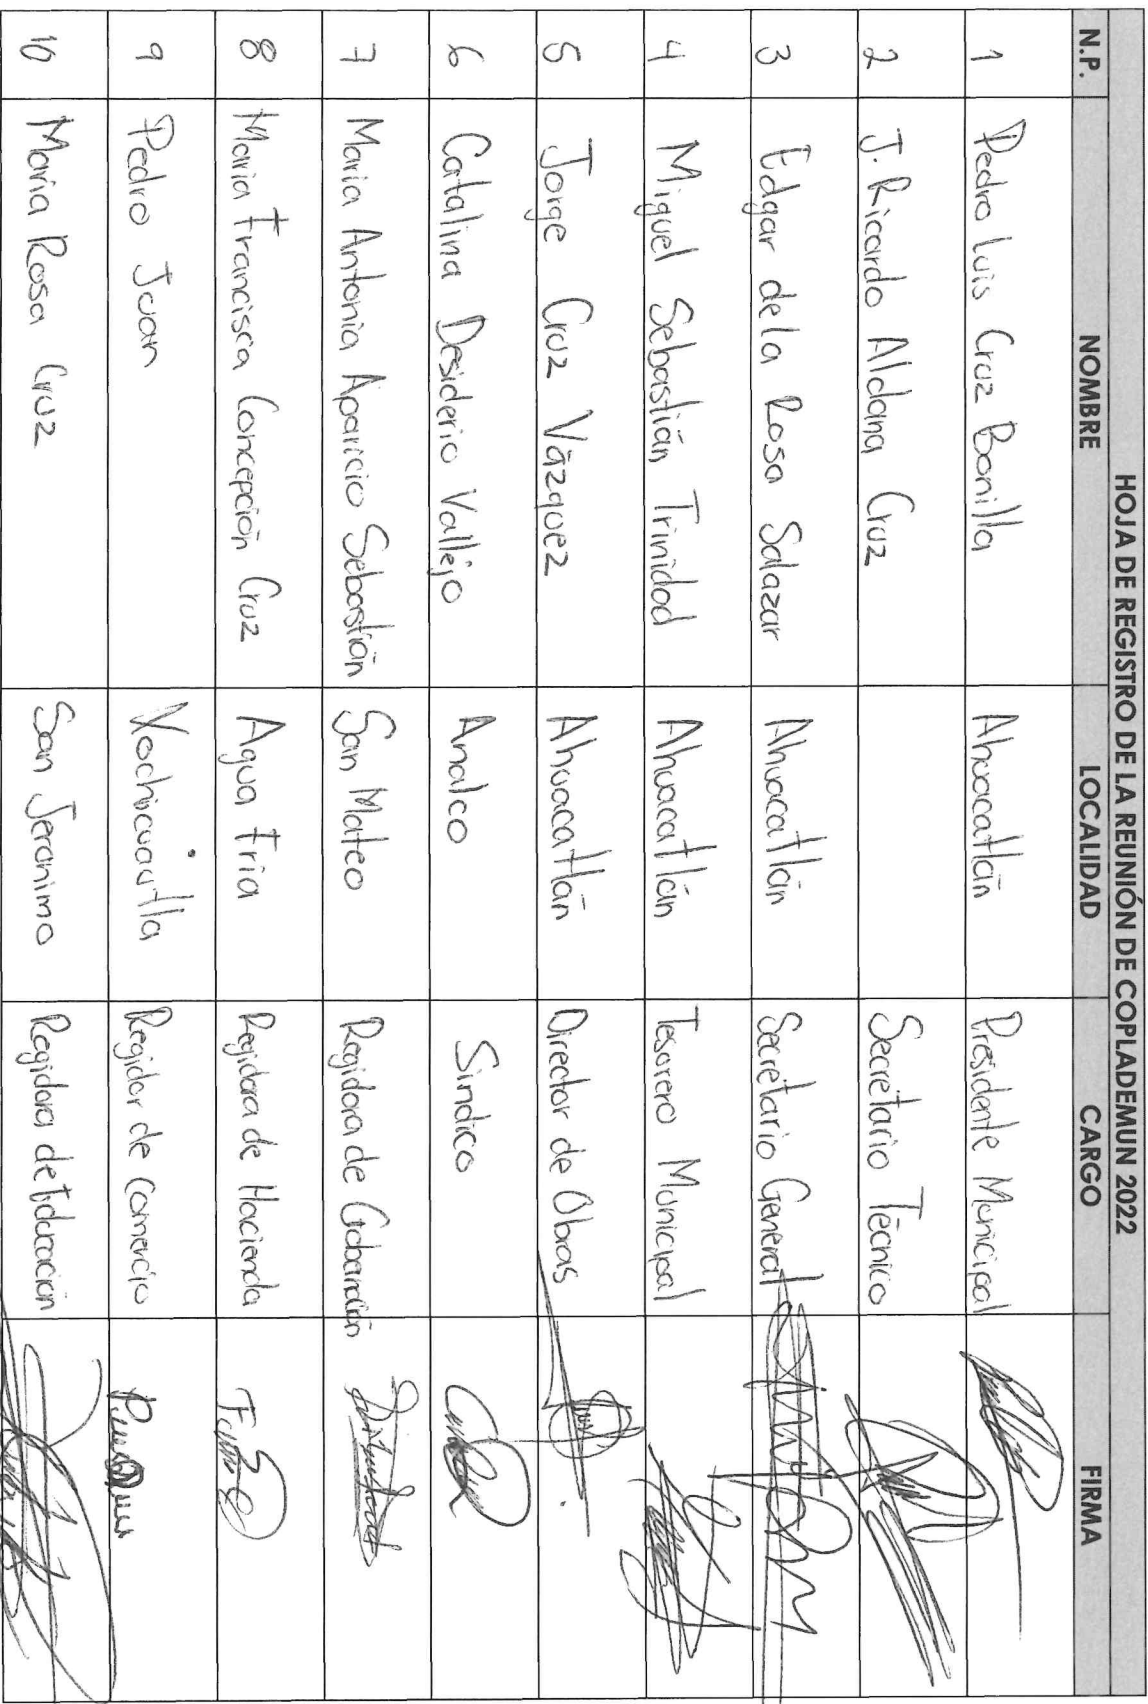 HOJA DE REGISTRO DE LA REUNIÓN DE COPLADEMUN 2022
N.P. NOMBRE LOCALIDAD CARGO FIRMA
1 Pedro Luis Cruz Bonilla Ahuacatlán Presidente Municipal
2 J. Ricardo Aldana Cruz Secretario Técnico
3 Edgar de la Rosa Salazar Ahuacatlán Secretario General
4 Miguel Sebastián Trinidad Ahuacatlán Tesorero Municipal
5 Jorge Cruz Vázquez Ahuacatlán Director de Obras
6 Catalina Desiderio Vallejo Analco Sindico
7 Maria Antonia Aparicio Sebastián San Mateo Regidora de Gobanción
8 Maria Francisca Concepción Cruz Agua Fria Regidora de Hacienda
9 Pedro Juan Xochicuautla Regidor de Comercio
10 Maria Rosa Cruz San Jeronimo Regidora de Educacion